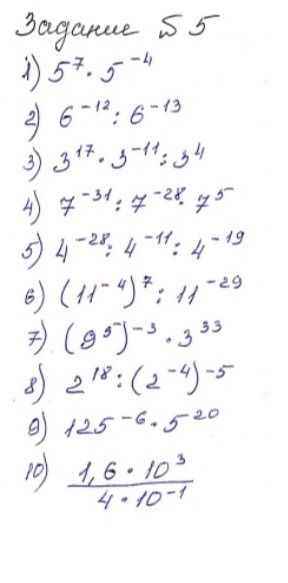 Задание №5
1) 5⁷ · 5⁻⁴
2) 6⁻¹² : 6⁻¹³
3) 3¹⁷ · 3⁻¹¹ : 3⁴
4) 7⁻³¹ : 7⁻²⁸ · 7⁵
5) 4⁻²⁸ : 4⁻¹¹ : 4⁻¹⁹
6) (11⁻⁴)⁷ : 11⁻²⁹
7) (9⁵)⁻³ · 3³³
8) 2¹⁸ : (2⁻⁴)⁻⁵
9) 125⁻⁶ · 5²⁰
10) 1,6 · 10³
4 · 10⁻¹